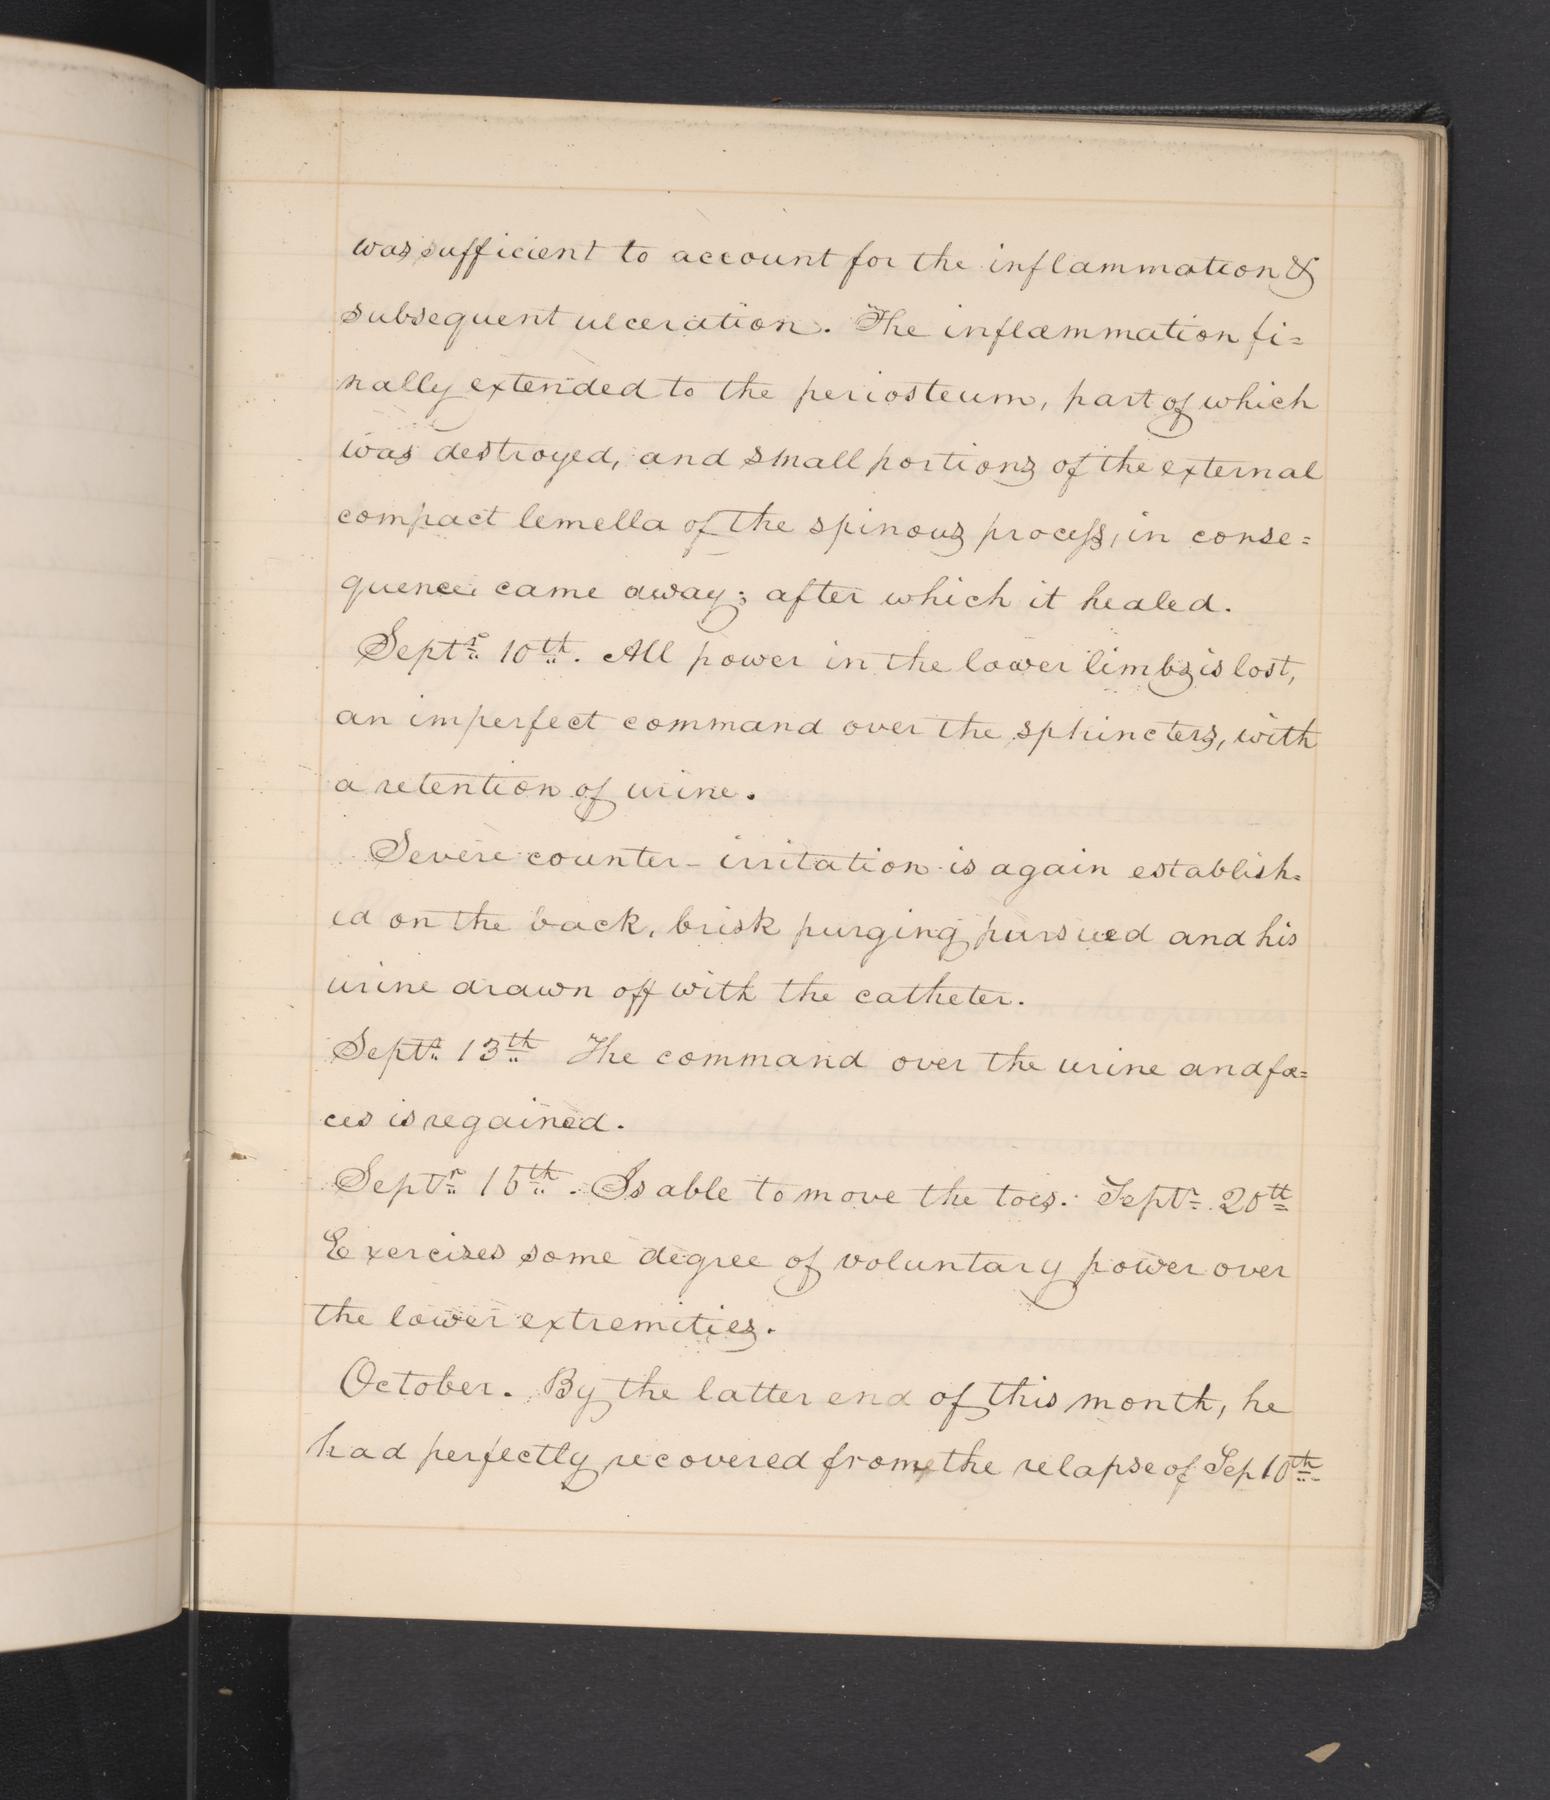 was sufficient to account for the inflammation &
subsequent ulceration. The inflammation fi=
nally extended to the periosteum, part of which
was destroyed, and small portions of the external
compact lemella of the spinous process, in conse=
quence came away; after which it healed.
Septr. 10th. All power in the lower limbs is lost,
an imperfect command over the sphincters, with
a retention of urine.
Severe counter-irritation is again establish=
ed on the back, brisk purging pursued and his
urine drawn off with the catheter.
Septr. 13th The command over the urine and fæ=
ces is regained.
Septr. 15th. Is able to move the toes. Septr. 20th
Exercises some degree of voluntary power over
the lower extremities.
October. By the latter end of this month, he
had perfectly recovered from the relapse of Sep 10th